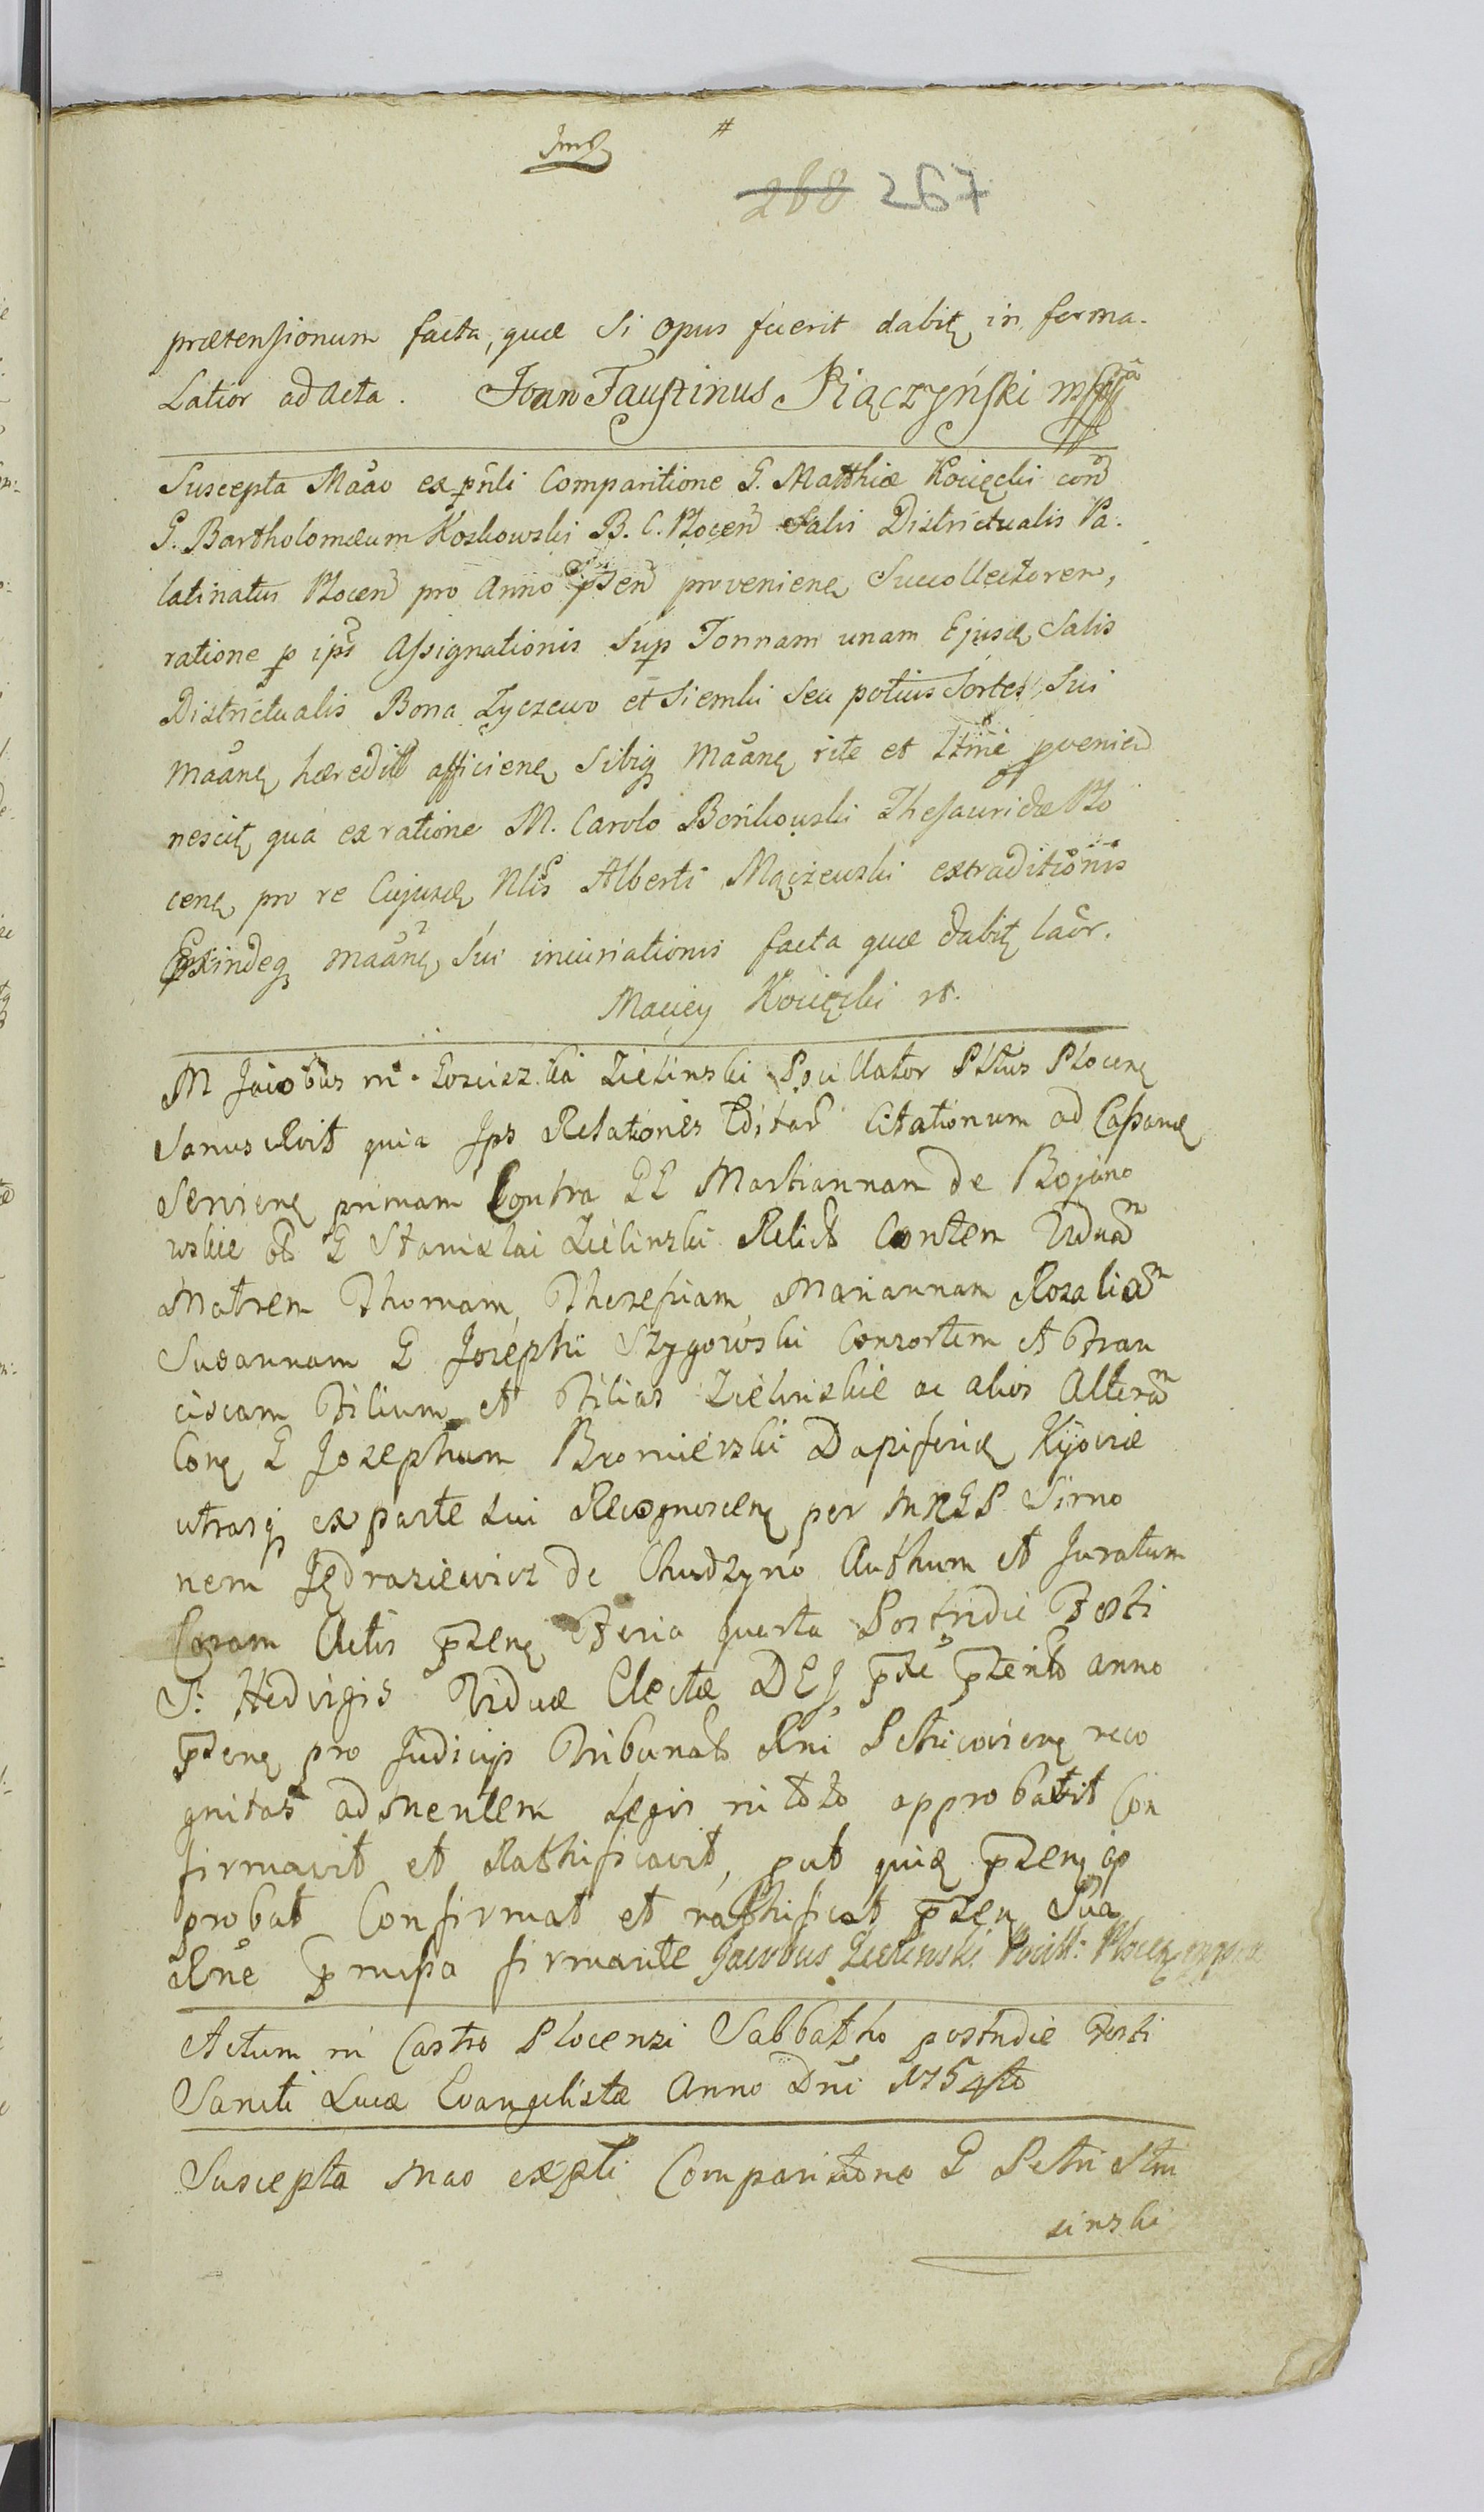 #
268 267
prætensionum facta, quæ si opus fuerit dabit in forma.
Lator ad acta. Joan Faustinus Piączyński mppa
Suscepta Mãao ex pñli Comparitione G. Matthiæ Kocięcki con
G. Bartholomæum Koskowski B. C. Plocen Salis Districtualis Pa-
latinatus Plocen pro Anno pñsen provenien Succollectorem,
ratione p ips Assignationis Sup Tonnam unam Ejusd Salis
Districtualis Bona Zyczewo et Siemki seu potius Sortes Sui
Mãan hæredit afficien sibiq Mãan rite et ltme pvenien
nescit qua ex ratione M. Carolo Bońkowski Thesauridæ Plo
cen pro re Cujusd Nlis Alberti Mączewski extraditionis
Exindeq mãan Sui iniuriationis facta quæ dabit lator.
Maciey Kocięcki rt.
M Jacobus in Gościszka Zielinski Pocillator Pltus Plocen
Sanus Rvit quia Ips Relationes Editar Citationum ad Cassand
Servien primam Contra GG Martiannam de Bojano
wskie ol G Stanislai Zielinski Relict Contem Viduam
Matrem Thomam, Theresiam Mariannam Rosaliam
Susannam G Josephi Szygowski Consortem et Fran
ciscam Filium et Filias Zielinskie ac alios Alteram
Con G Josephum Bromierski Dapiferid Kijoviæ
utrasq ex parte sui Recognoscen per MNGP Simo
nem Jędrasiewicz de Chudzyno Authum et Juratum
Coram Actis pñsen Feria quarta Postridie Festi
S: Hedvigis Viduæ Electæ DEI pñte pñsenti anno
pñsen pro Judicijs Tribunals Rni Petricovien reco
gnitas ad mentem Legis in toto approbavit Con
firmavit et Rathificavit, put quid pñsen ap
probat Confirmat et rathificat pñsen Sua
Rne p missa firmante Jacobus Zielinski Pocill: Plocen mppa
Actum in Castro Plocensi Sabbatho postridie Festi
Sancti Lucæ Evangelistæ Anno Dni 1754to
Suscepta mao ex pñli Comparitione G Petri
sinski